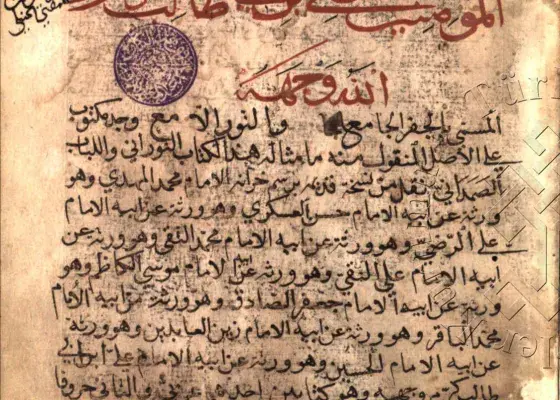 المؤمنين علي بن ابي طالب
الله وجهه
المسمى بالجفر الجامع والنور الامع وجد مكتوب
على الاصل المنقول منه ما مثاله هذا الكتاب النوراني واللباب
الصمداني نقل من نسخة قديمة برسم خزانة الامام محمد المهدي وهو
ورثه عن ابيه الامام حسن العسكري وهو ورثه عن ابيه الامام
على الرضى وهو ورثه عن ابيه الامام محمد التقى وهو ورثه عن
ابيه الامام على النقى وهو ورثه عن الامام موسى الكاظم وهو
ورثه عن ابيه الامام جعفر الصادق وهو ورثه عن ابيه الامام
محمد الباقر وهو ورثه عن ابيه الامام زين العابدين وهو ورثه
عن ابيه الامام الحسين وهو ورثه عن ابيه الامام على ابن ابي
طالب كرم وجهه وهو كتابين احدهم والثاني حروفا